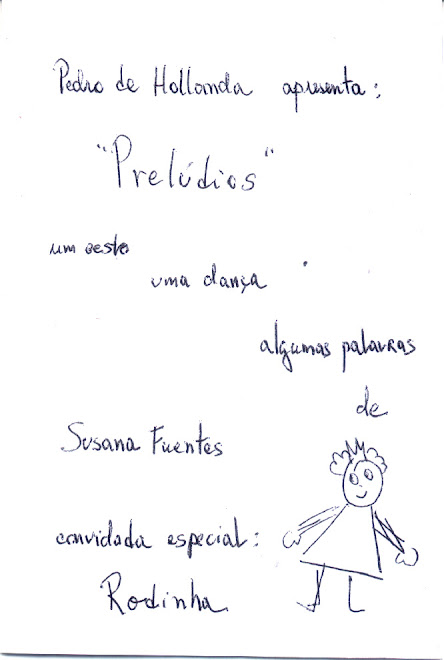 Pedro de Hollanda apresenta:
"Prelúdios"
um gesto
uma dança
algumas palavras
de
Susana Fuentes
convidada especial:
Rodinha